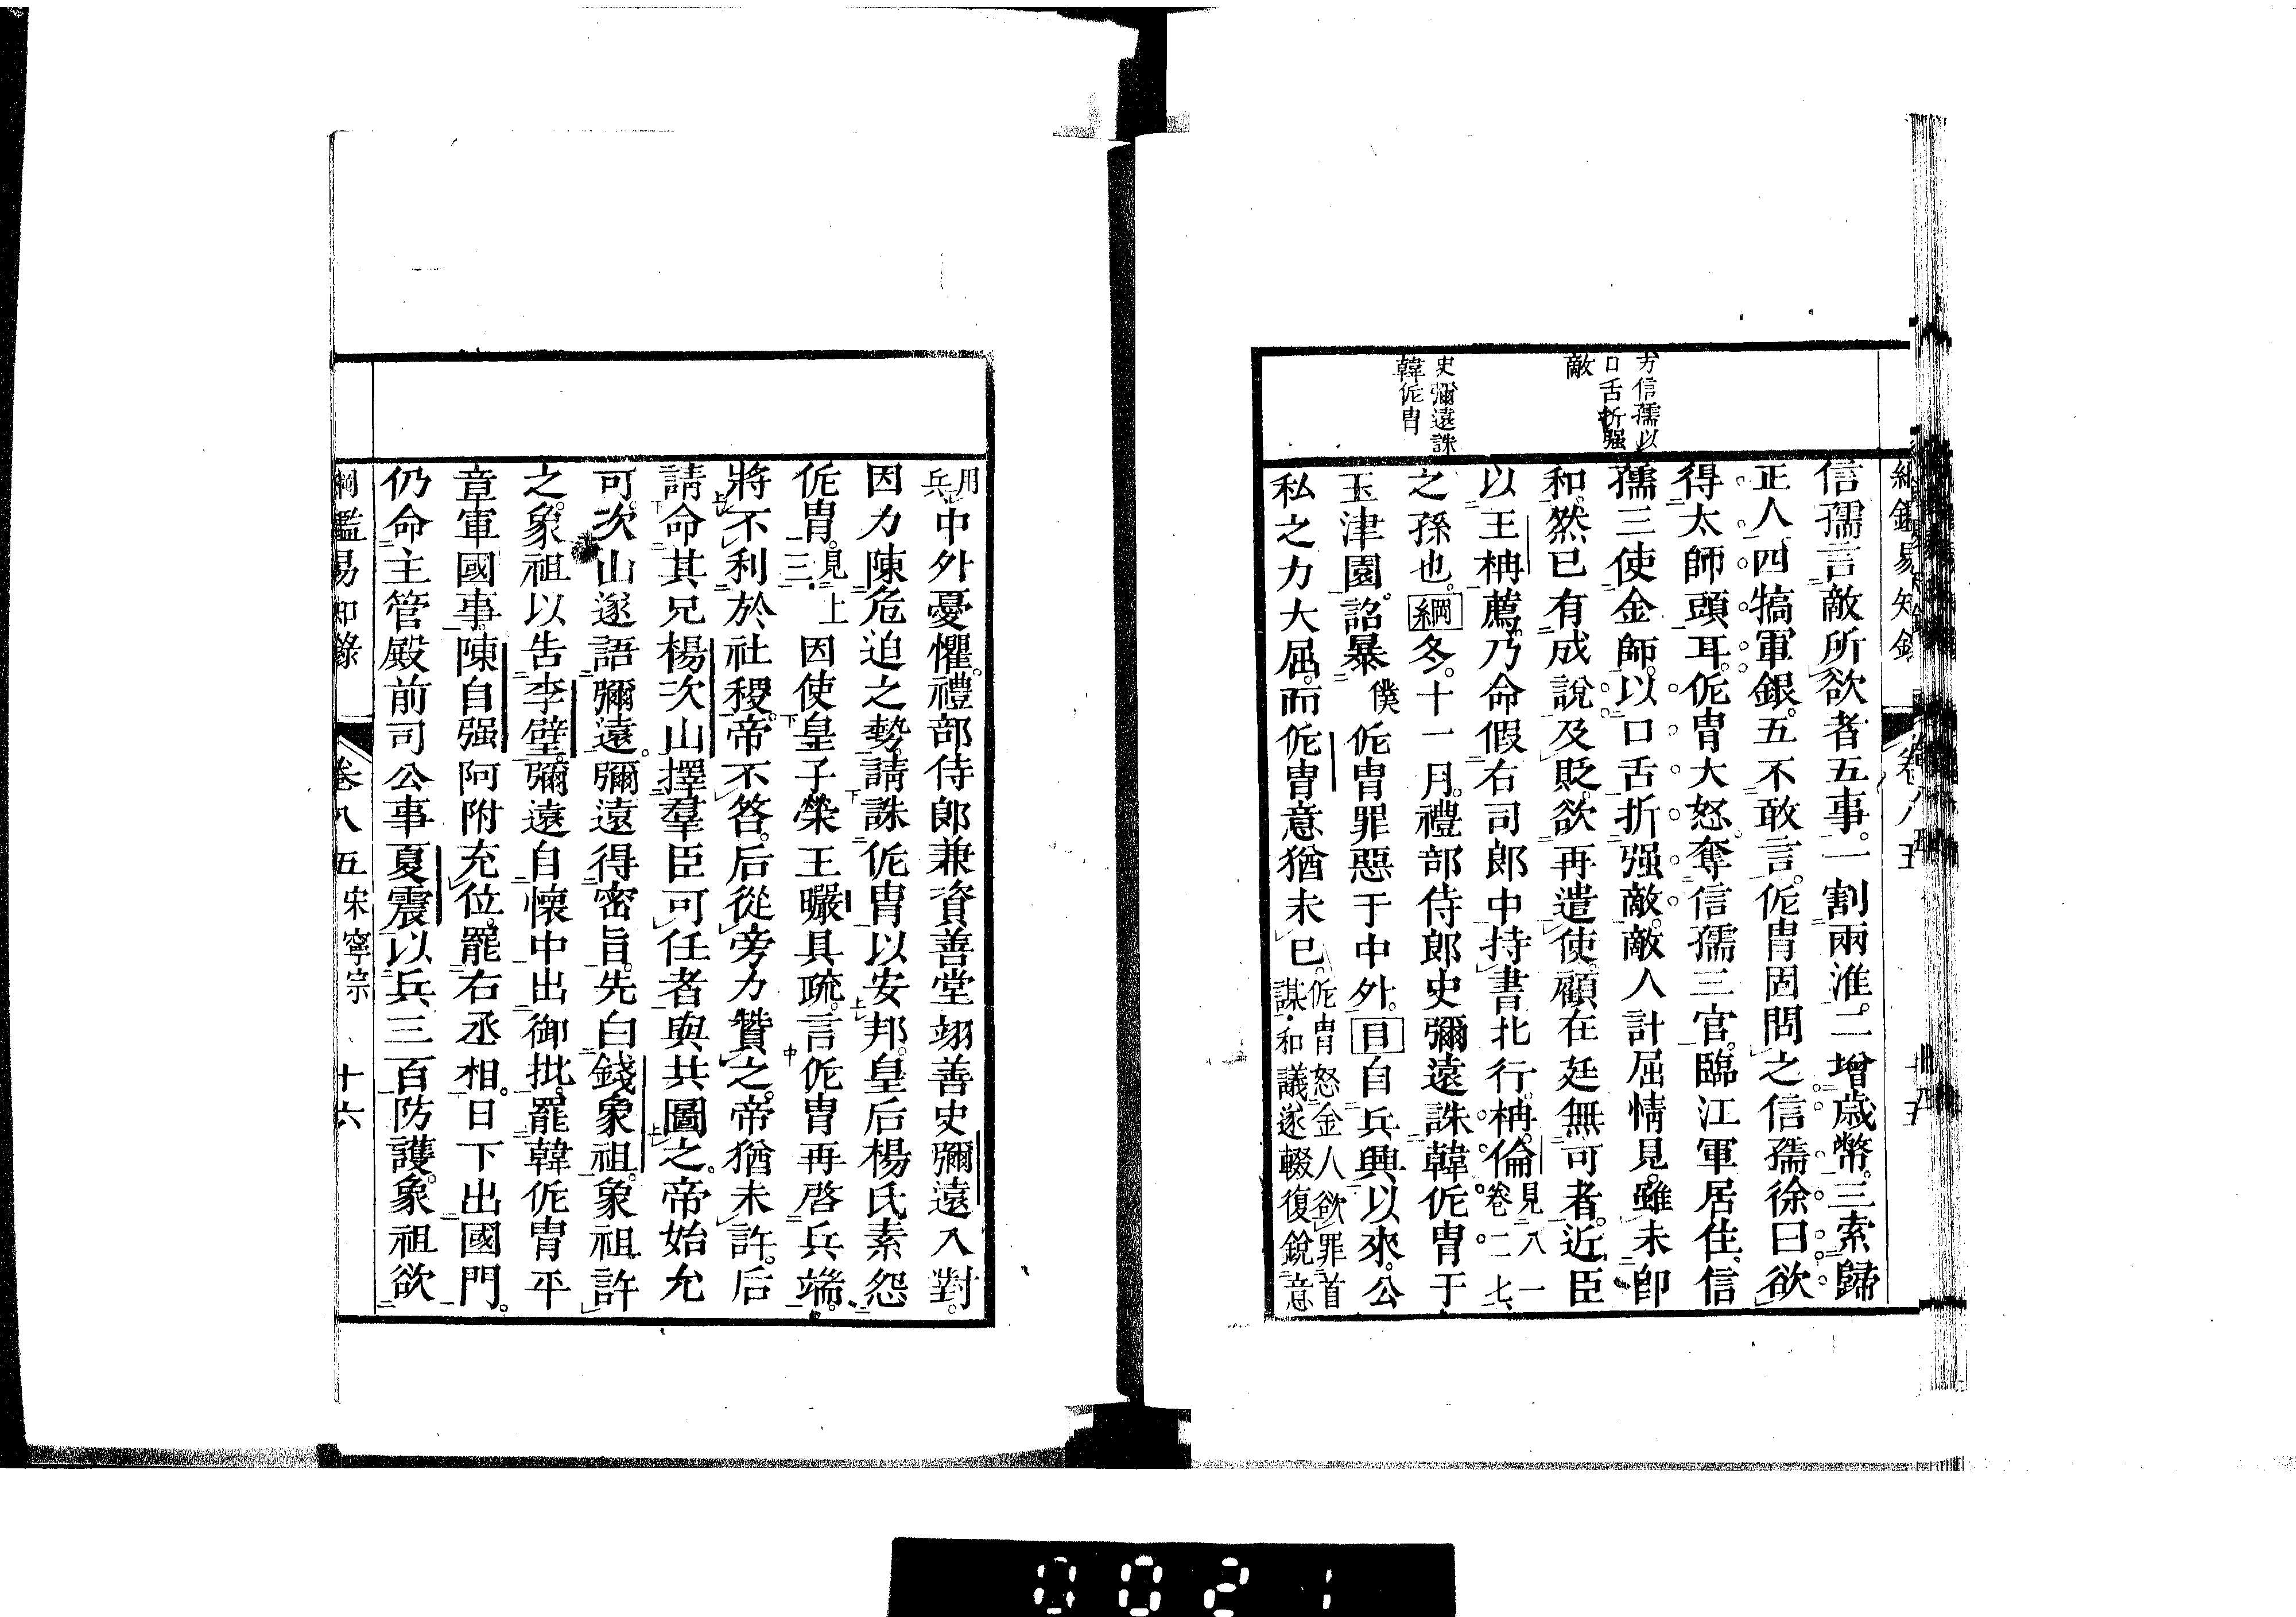 方信孺以
口舌折强
敵
史彌遠誅
韓侂冑
信孺言敵所欲者五事。一割兩淮。二增歲幣。三索歸
正人。四犒軍銀。五不敢言。侂冑固問之。信孺徐曰。欲
得太師頭耳。侂冑大怒。奪信孺三官。臨江軍居住。信
孺三使金師。以口舌折强敵。敵人計屈情見。雖未卽
和。然已有成說。及貶。欲再遣使。顧在廷無可者。近臣
以王柟薦。乃命假右司郎中。持書北行。柟。倫見八一卷二七、
之孫也。綱冬。十一月。禮部侍郎史彌遠誅韓侂冑于
玉津園。詔暴僕侂冑罪惡于中外。目自兵興以來。公
私之力大屈。而侂冑意猶未已。侂冑怒金人欲罪首謀和議遂輟復銳意
用兵中外憂懼。禮部侍郎兼資善堂翊善史彌遠入對。
因力陳危迫之勢。請誅侂冑以安邦。皇后楊氏素怨
侂冑。見上三因使皇子榮王曮具疏。言侂冑再啓兵端。
將不利於社稷。帝不答。后從旁力贊之。帝猶未許。后
請命其兄楊次山。擇羣臣可任者。與共圖之。帝始允
可。次山遂語彌遠。彌遠得密旨。先白錢象祖。象祖許
之。象祖以告李壁。彌遠自懷中出御批。罷韓侂冑平
章軍國事。陳自强阿附充位。罷右丞相。日下出國門。
仍命主管殿前司公事夏震以兵三百防護。象祖欲
綱鑑易知錄 卷八五 宋寧宗 十六
0021